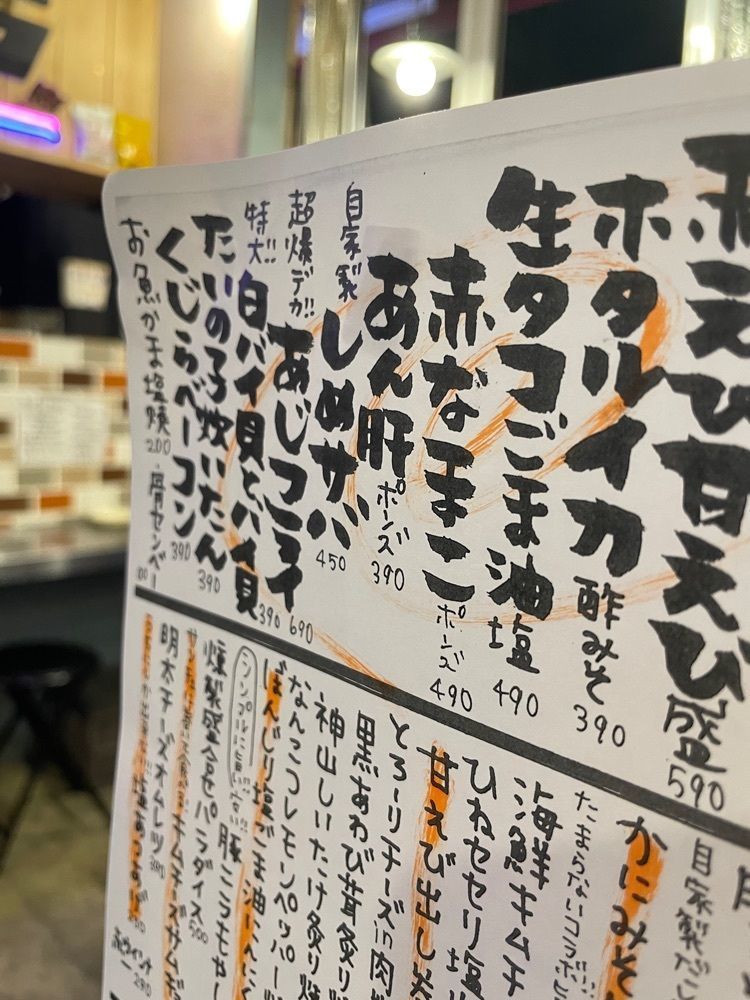 えび甘えび盛 590
ホタルイカ 酢みそ 390
生タコごま油塩 490
赤なまこ ポンズ 490
あん肝 ポンズ 390
自家製 しめサバ 450
超爆デカ!! あじフライ 690
特大!! 白バイ貝とバイ貝 390
たいの子炊いたん 390
くじらベーコン 390
お魚かま塩焼 200・骨センベー
自家製だし
かにみそ
たまらないコラボ
海鮮キムチ
ひねセセリ塩
甘えび出し
とろーりチーズin肉
黒あわび茸炙り
神山しいたけ炙り焼
なんこつレモンペッパー
ぼんじり塩ごま油にんにく
シンプルに旨い!! 豚こうもやし
燻製盛合せパラダイス 500
チーズサムギョ
明太チーズオムレツ 390